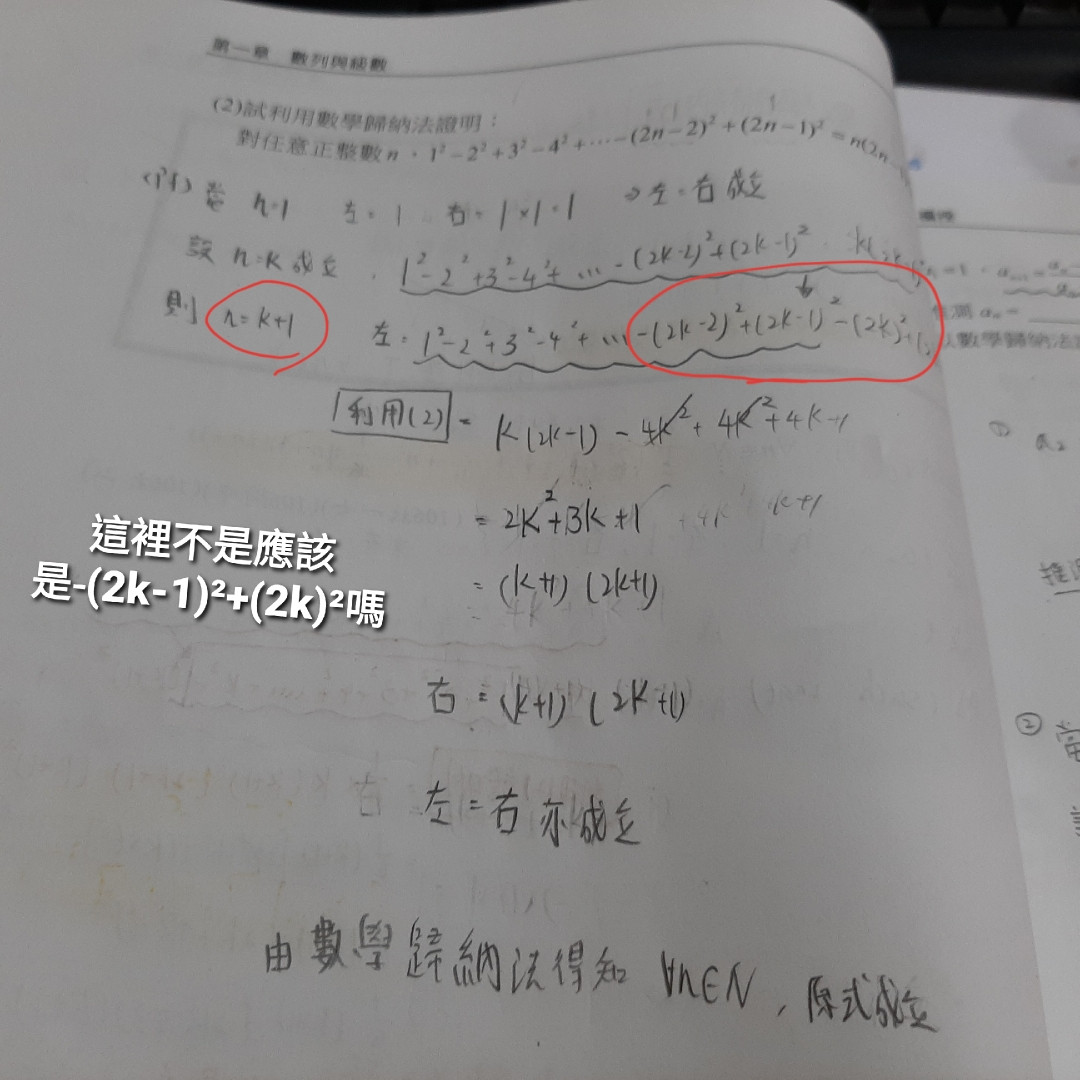 第一章 數列與級數
(2)試利用數學歸納法證明：
對任意正整數n，1²-2²+3²-4²+⋯-(2n-2)²+(2n-1)²=n(2n-
n=1 左=1 右=1×1=1 ⇒左=右 成立
設 n=k 成立 1²-2²+3²-4²+⋯-(2k-2)²+(2k-1)²
則 n=k+1 左=1²-2²+3²-4²+⋯-(2k-2)²+(2k-1)²-(2k)²+
利用(2) = k(2k-1)-4k²+4k²+4k+1
=2k²+3k+1
=(k+1)(2k+1)
這裡不是應該
是-(2k-1)²+(2k)²嗎
右=(k+1)(2k+1)
左=右 亦成立
由數學歸納法得知 ∀n∈N，原式成立
①
②